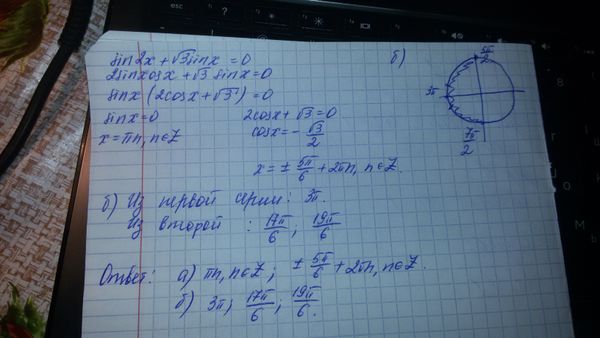 sin2x + √3 sinx = 0
2sinxcosx + √3 sinx = 0
sinx (2cosx + √3) = 0
sinx = 0
x = πn, n∈Z
2cosx + √3 = 0
cosx = -√3/2
x = ± 5π/6 + 2πn, n∈Z.
б)
5π/2
3π
7π/2
б) Из первой серии: 3π.
Из второй : 17π/6; 19π/6
Ответ: а) πn, n∈Z; ± 5π/6 + 2πn, n∈Z.
б) 3π; 17π/6; 19π/6.
esc